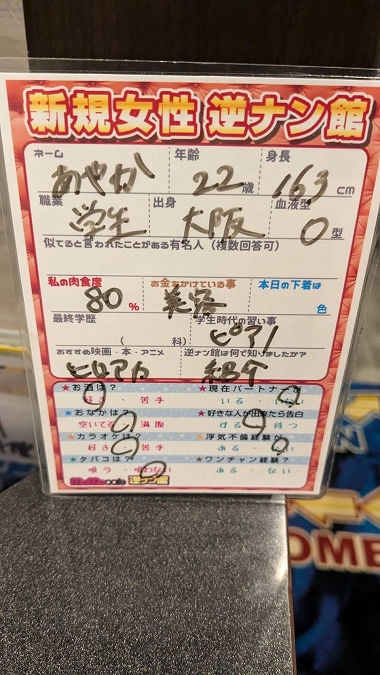 新規女性 逆ナン館
ネーム 年齢 身長
あやか 22歳 163cm
職業 出身 血液型
学生 大阪 O型
似てると言われたことがある有名人(複数回答可)
私の肉食度 お金をかけている事 本日の下着は
80% 美容 色
最終学歴 学生時代の習い事
(科) ピアノ
おすすめ映画・本・アニメ 逆ナン館は何で知りましたか?
紹介
★お酒は? ★現在パートナーが
好き 苦手 いる・ない
★おなかは? ★好きな人が出来たら告白
空いてる 満腹 する 待つ
★カラオケは? ★浮気不倫経験が
好き 苦手 ある ない
★タバコは? ★ワンチャン経験?
吸う・吸わない ある・ない
逆ナン館
OMB